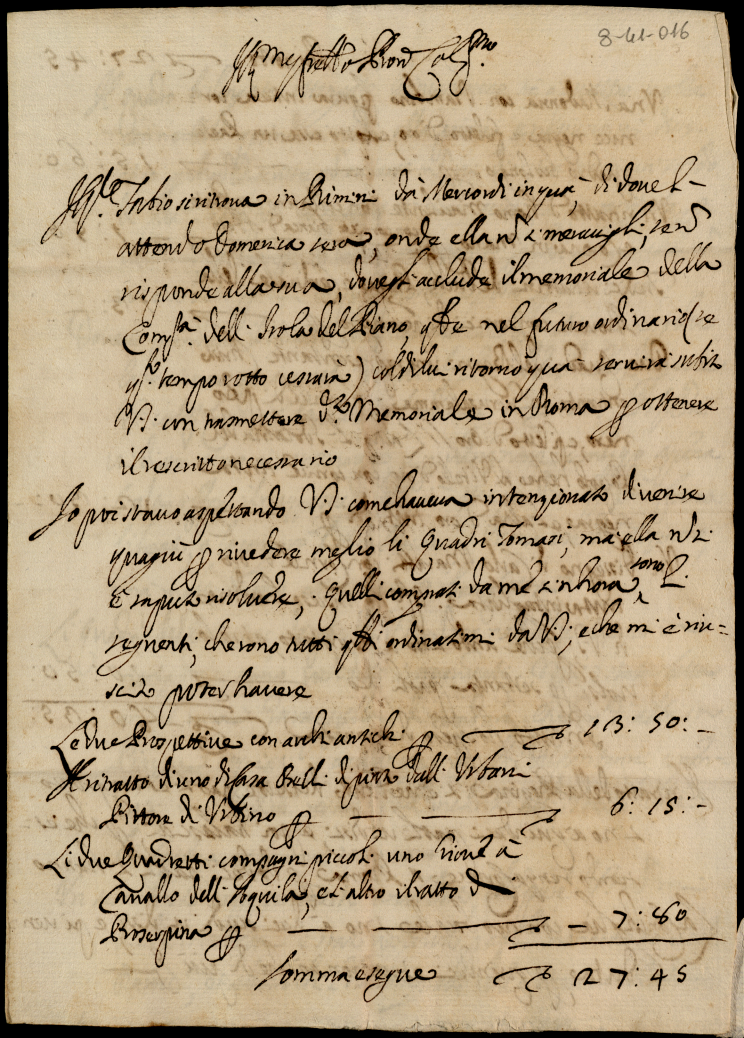 8-41-016
Ill.mo mio fratello Pron Col.mo
Il S.r Fabio si ritrova in Rimini da Mercordi in quà, di dove l'
attendo Domenica sera, onde ella nō si meravigli, se nō
risponde alla sua, dove gli acclude il memoriale della
Comp.a dell' Isola del Piano, q̄le nel futuro ordinario (se
q.to tempo rotto cessarà) col di lui ritorno quà servirà subito
V.S. con trasmettere d.o Memoriale in Roma p ottenere
il rescritto necessario
Io poi stavo aspettando V.S. come haveva intenzionato di venire
quagiù p rivedere meglio li Quadri Tomasi, ma ella nō si
è saputa risolvere, quelli comprati da mè sin hora, sono l.
seguenti, che sono tutti q̄lli ordinatimi da V.S., e che mi è riu=
scito poter havere
Le due Prospettive con archi antichi p 13: 50: -
Il ritratto di uno di Casa Brilli dipinto dall' Urbani
Pittore di Urbino p 6: 15: -
Li due Quadretti compagni piccoli uno Giove à
Cavallo dell' Aquila, e l' altro il ratto di
Proserpina p - 7: 80
Somma e segue 27: 45